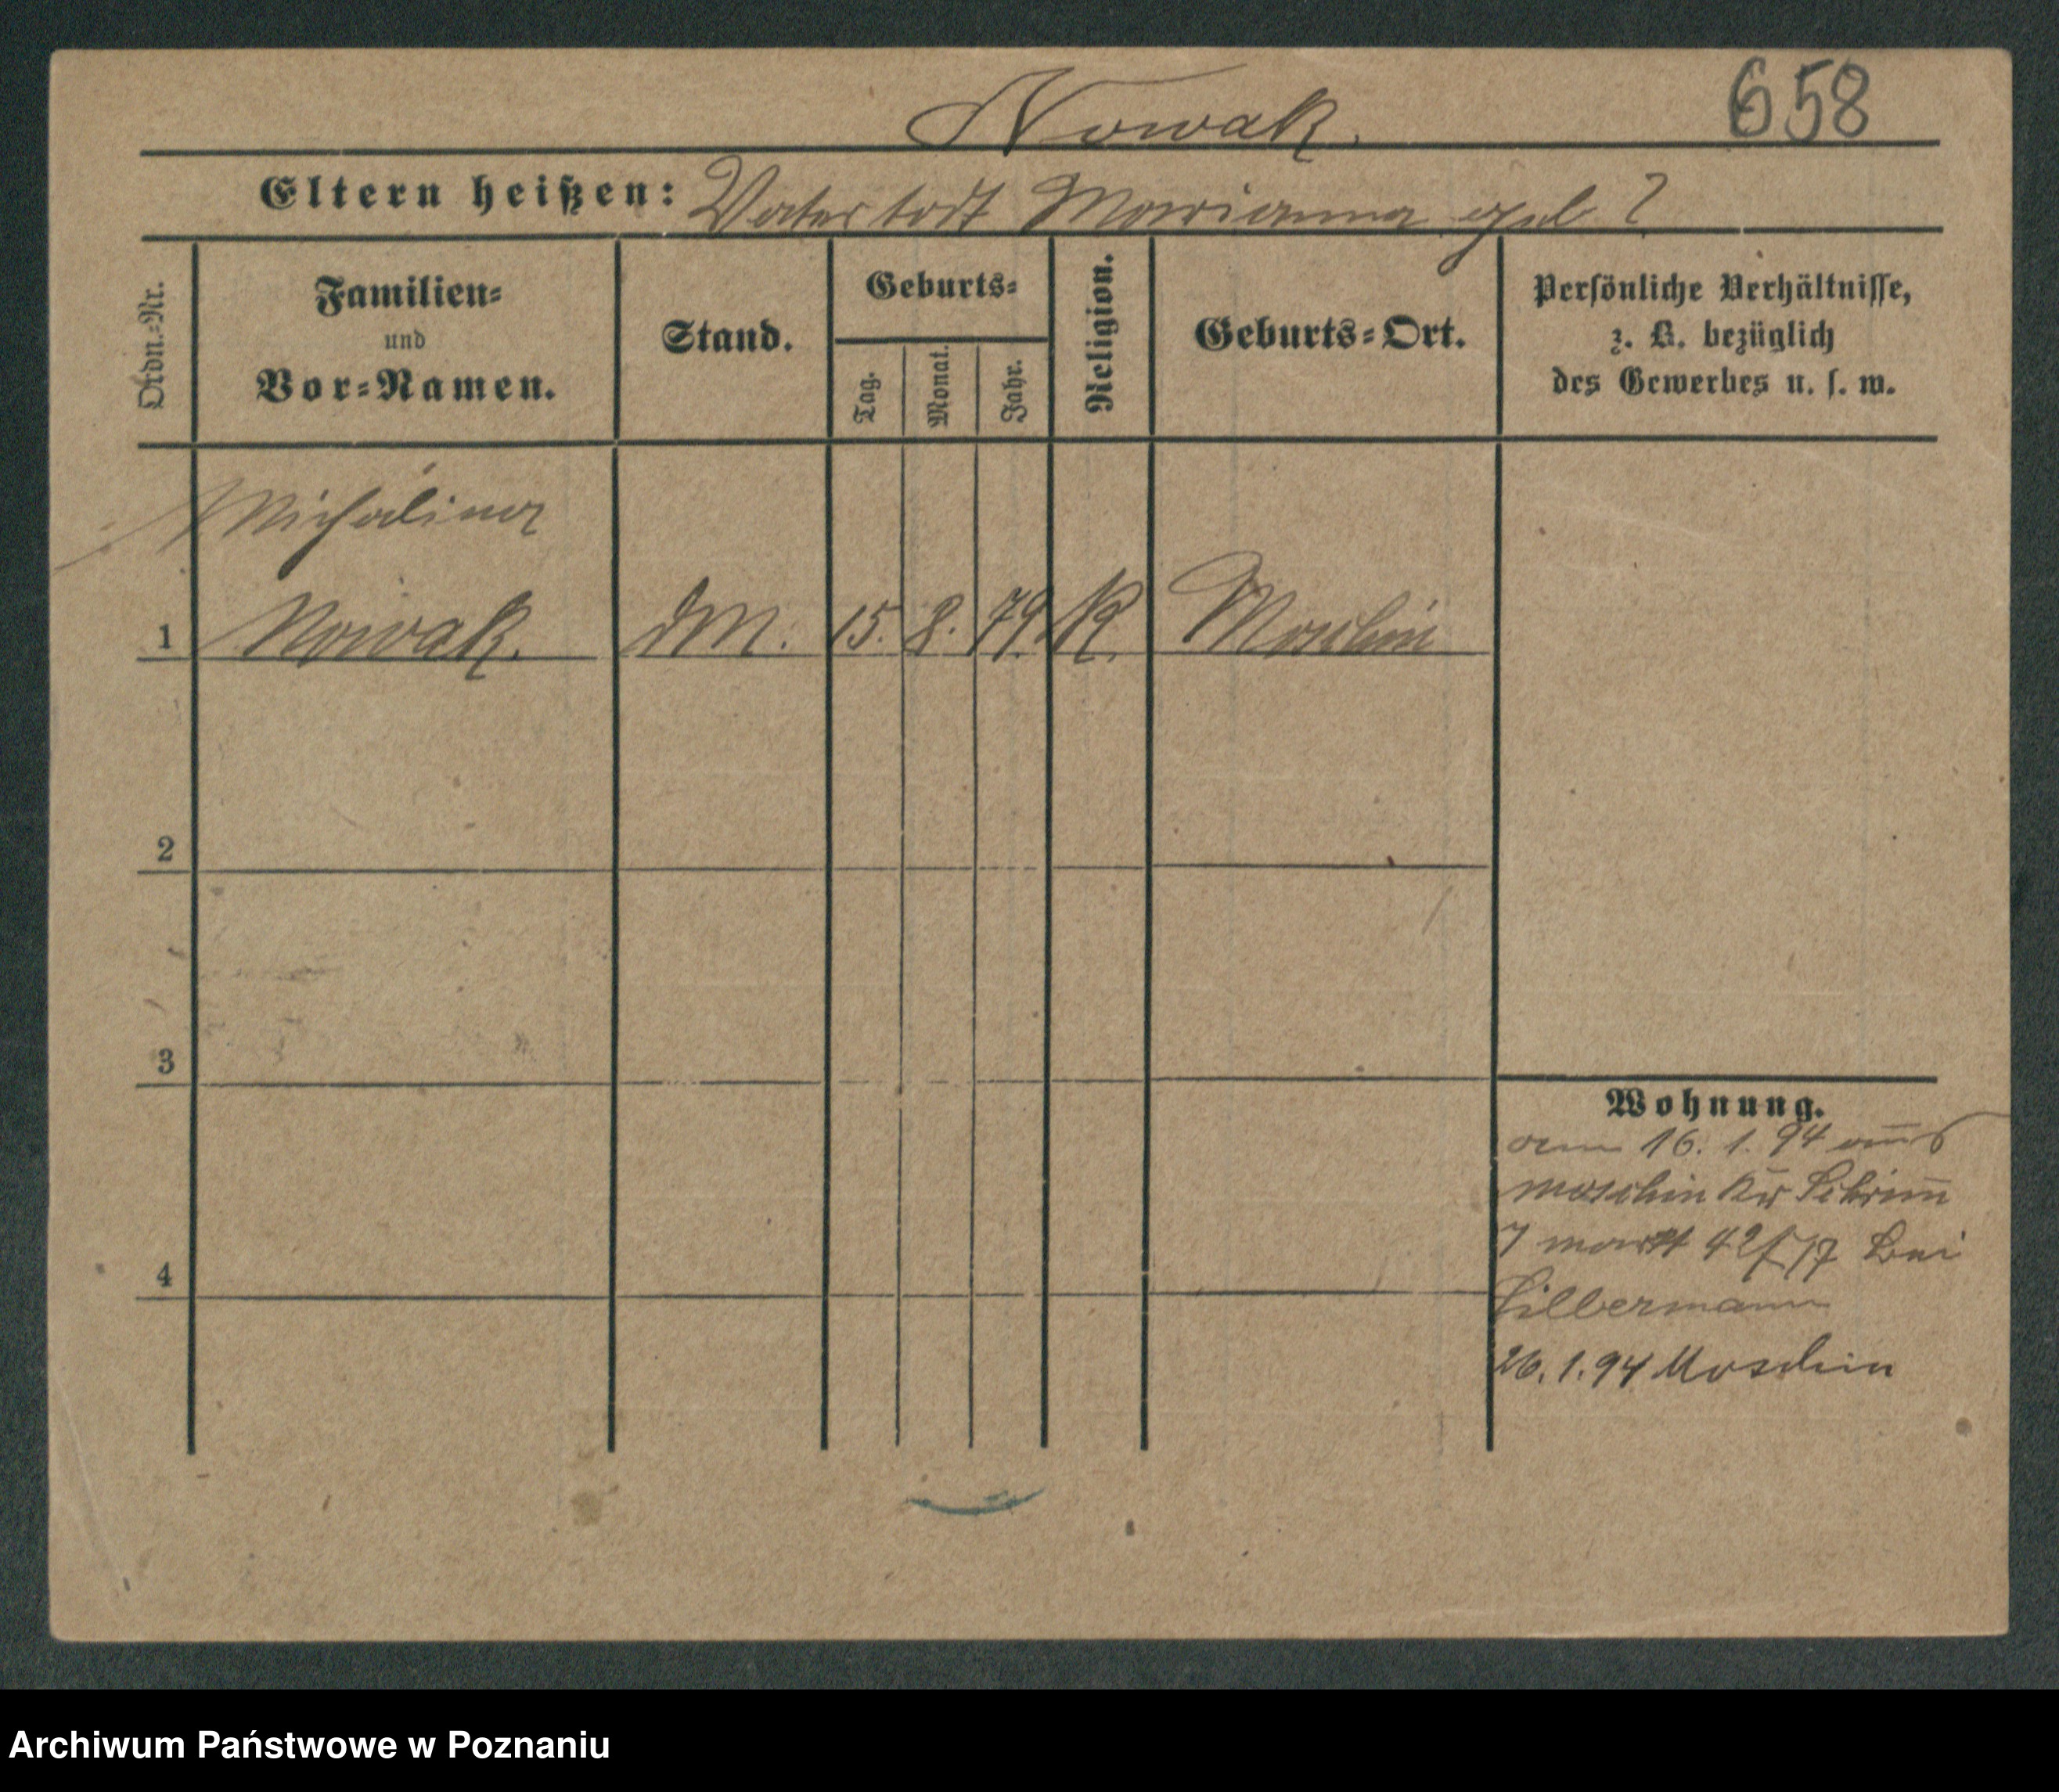 Nowak.
658
Eltern heißen: Vater todt Marianna geb ?
Ordn.-Nr.
Familien-
und
Vor-Namen.
Stand.
Geburts-
Tag.
Monat.
Jahr.
Religion.
Geburts-Ort.
Persönliche Verhältnisse,
z. B. bezüglich
des Gewerbes u. s. w.
Michalina
1 Nowak. dM. 15. 8. 79. K. Moschin
2
3
4
Wohnung.
am 16. 1. 94 aus
Moschin Kr Schrimm
Markt 42 bei
Silbermann
26. 1. 94 Moschin
Archiwum Państwowe w Poznaniu